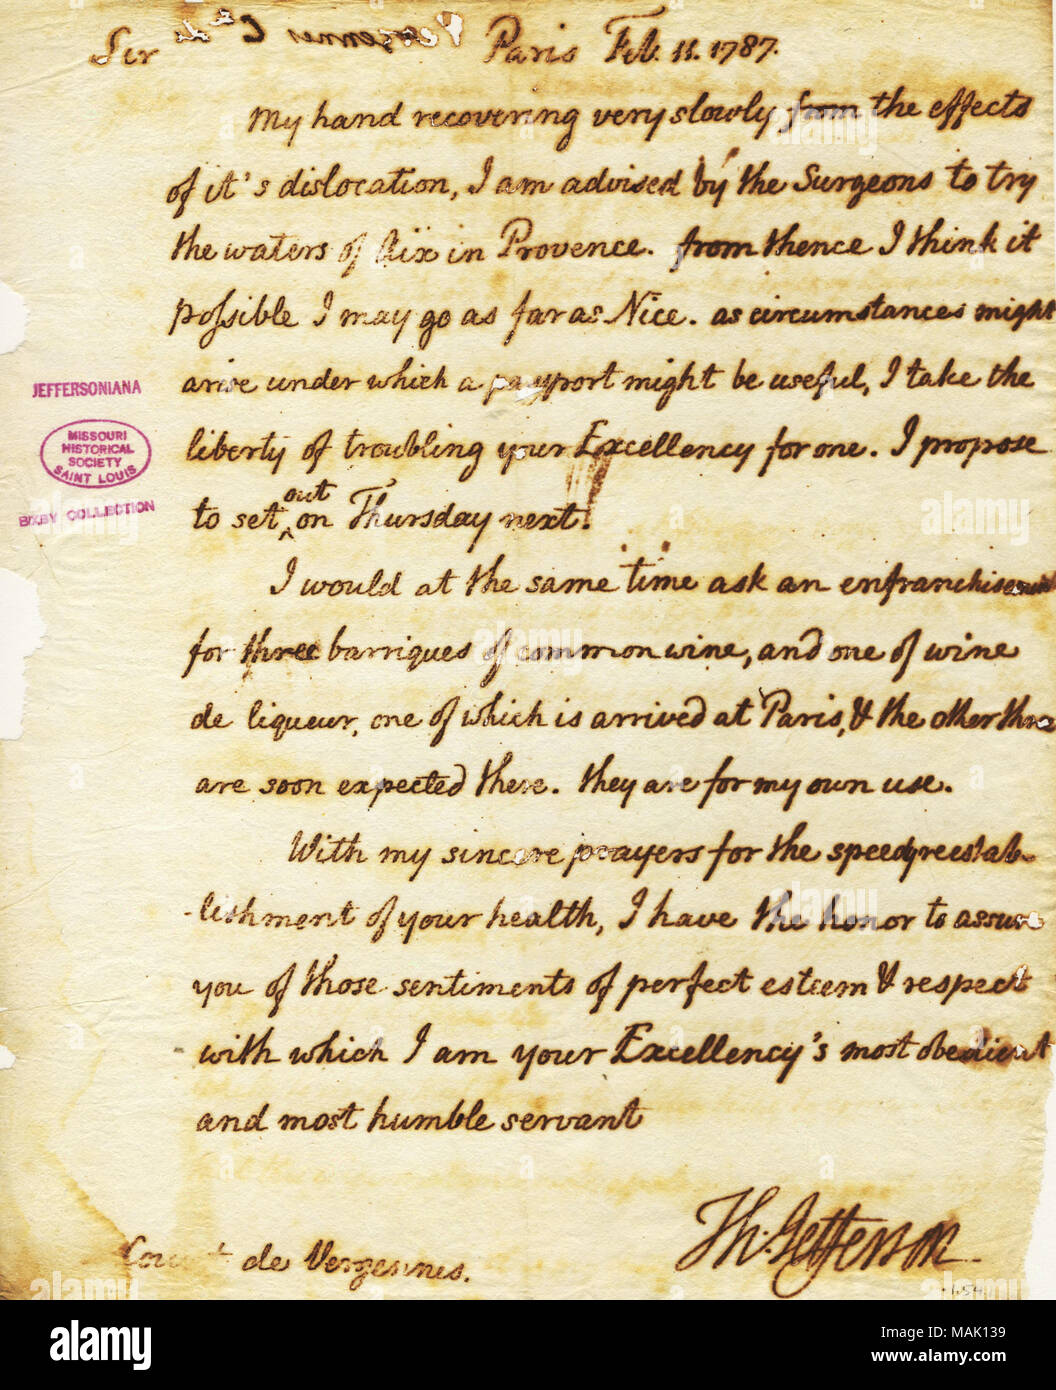 Sir Paris Feb. 11. 1787.
My hand recovering very slowly from the effects
of it's dislocation, I am advised by the Surgeons to try
the waters of Aix in Provence. from thence I think it
possible I may go as far as Nice. as circumstances might
arise under which a passport might be useful, I take the
liberty of troubling your Excellency for one. I propose
to set out on Thursday next.
I would at the same time ask an enfranchisement
for three barriques of common wine, and one of wine
de liqueur, one of which is arrived at Paris, & the other three
are soon expected there. they are for my own use.
With my sincere prayers for the speedy reestab-
-lishment of your health, I have the honor to assure
you of those sentiments of perfect esteem & respect
with which I am your Excellency's most obedient
and most humble servant
Th: Jefferson
Count de Vergennes.
JEFFERSONIANA
MISSOURI
HISTORICAL
SOCIETY
SAINT LOUIS
BIXBY COLLECTION
alamy
Image ID: MAK139
www.alamy.com